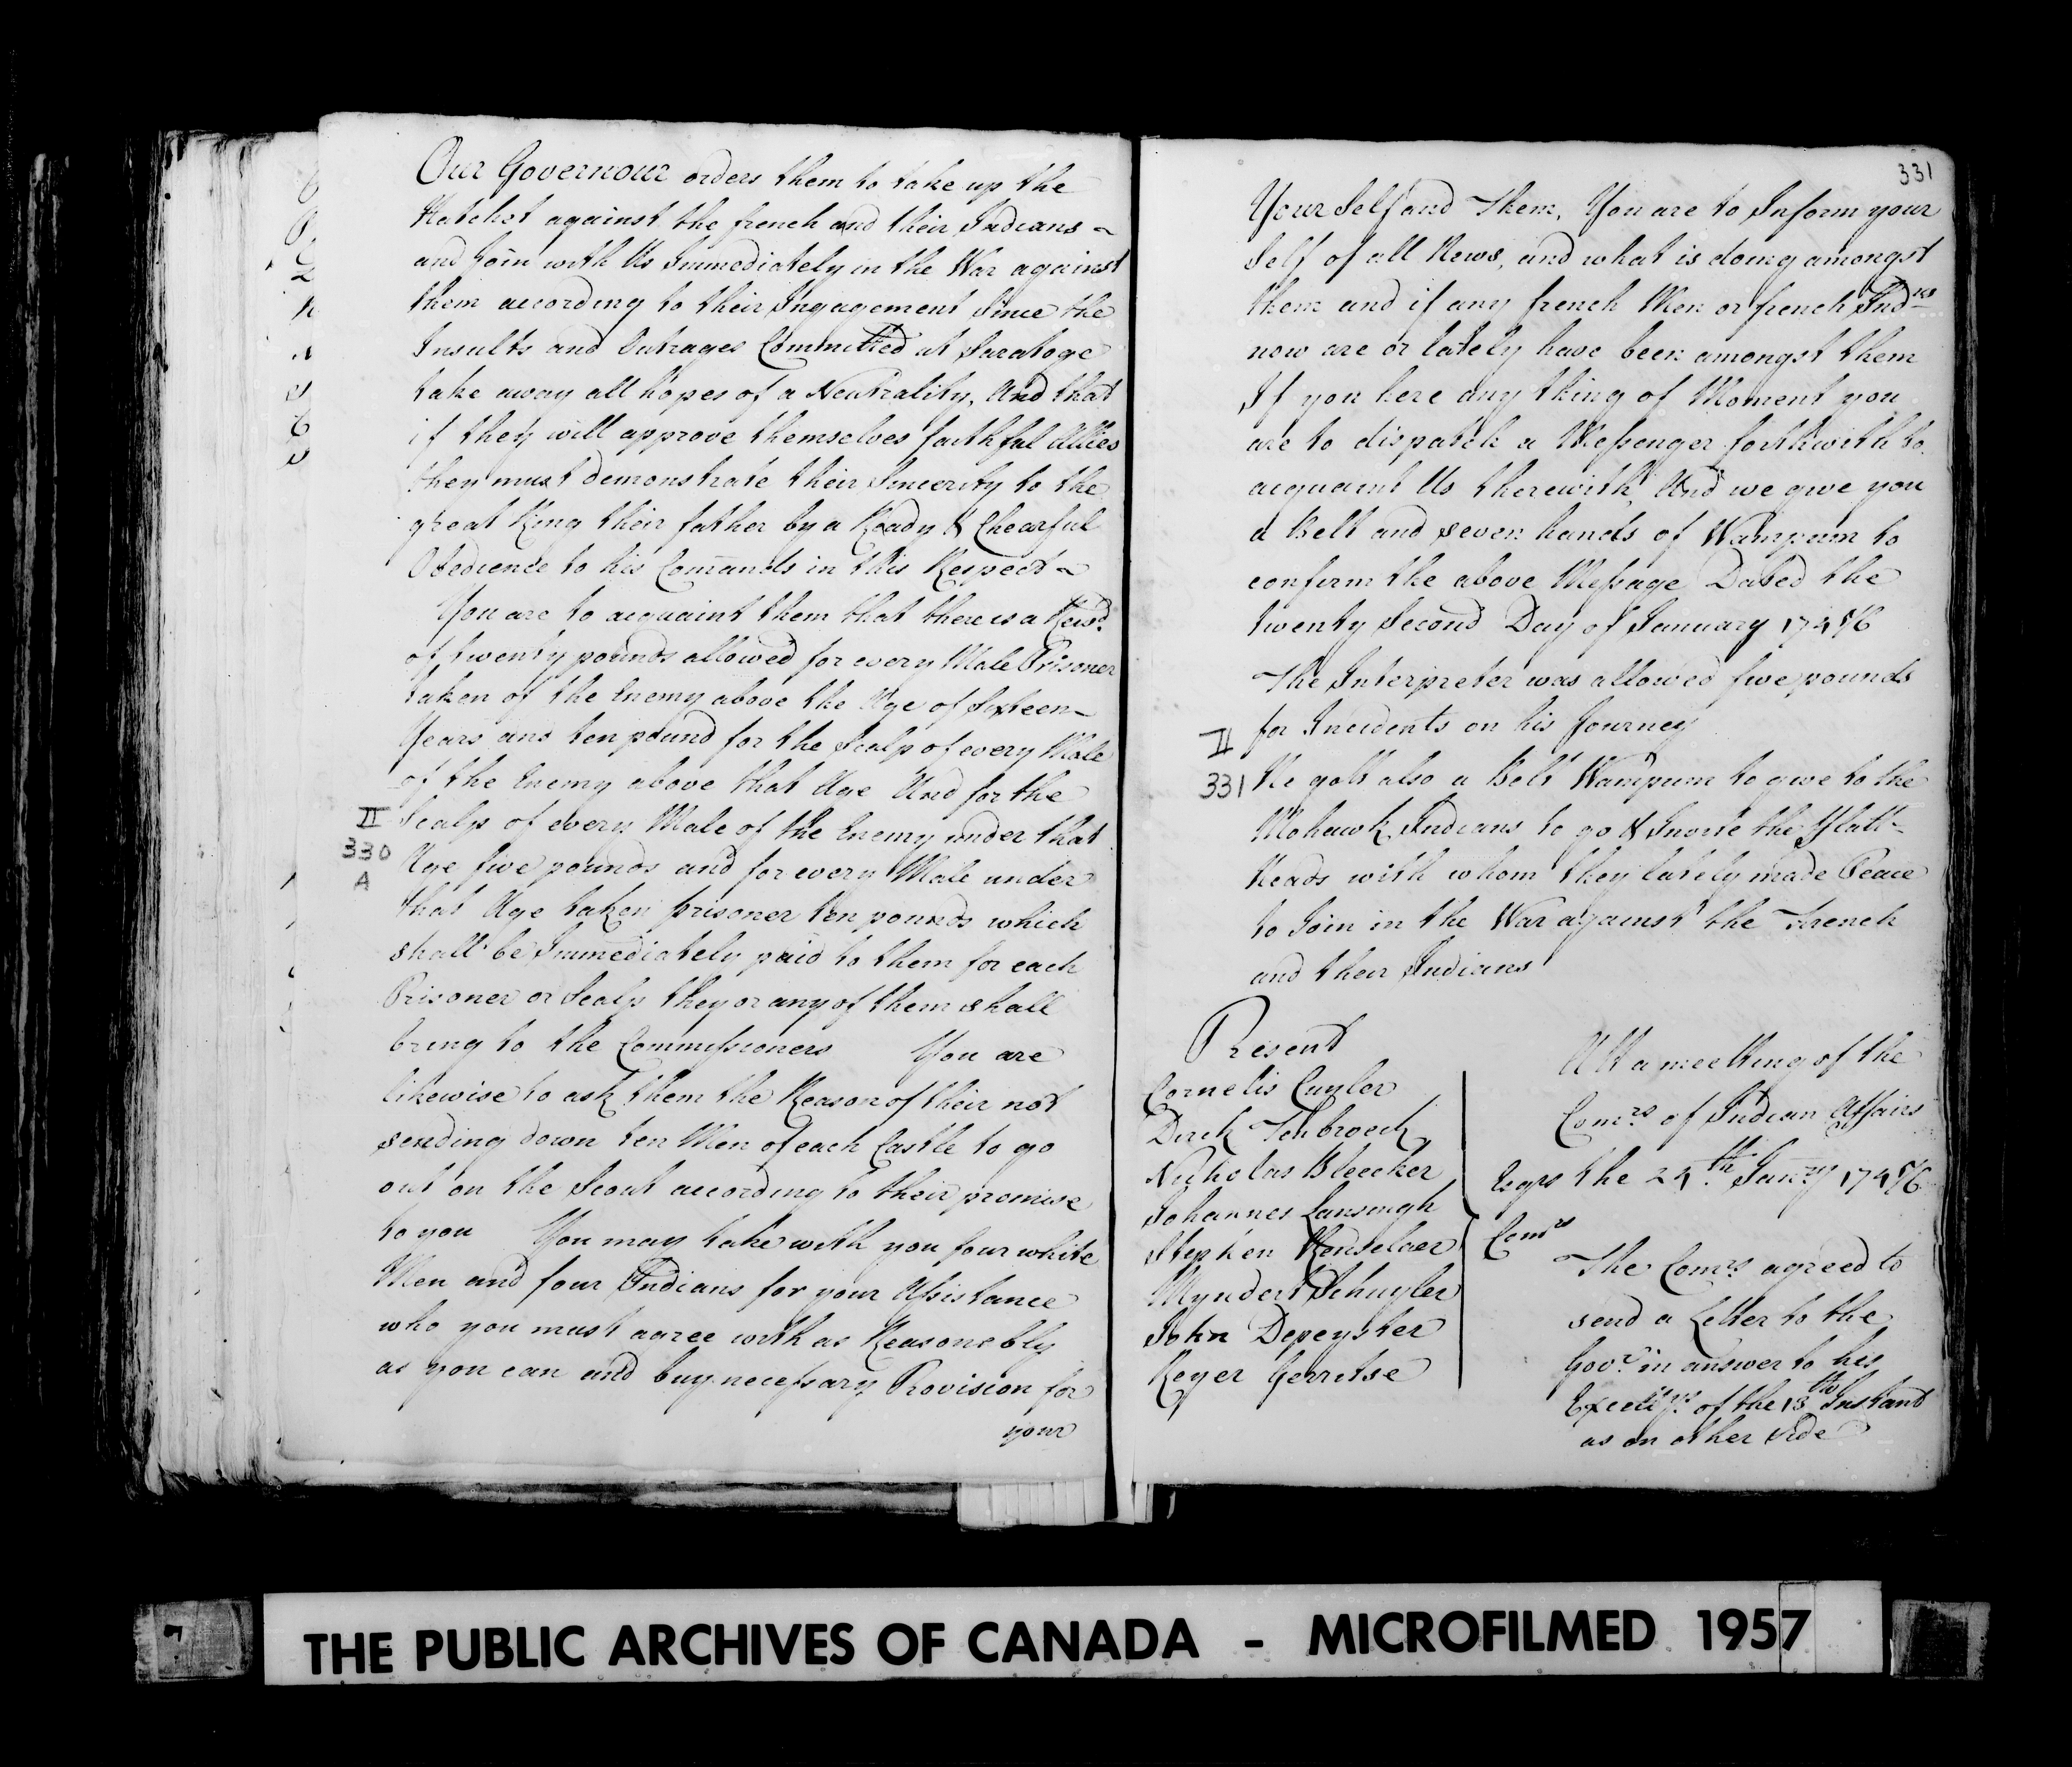 Our Governour orders them to take up the
Hatchet against the french and their Indians ~
and Join with Us Immediately in the War against
them according to their Ingagement Since the
Insults and Outrages Committed at Saratoge
take away all hopes of a Neutrality, And that
if they will approve themselves faithful Allies
they must demonstrate their Sincerity to the
great King their father by a Ready & Chearful
Obedience to his Comands in this Respect ~
You are to acquaint them that there is a Rewd.
of twenty pounds allowed for every Male Prisoner
taken of the Enemy above the Age of Sixteen
Years and ten pound for the Scalp of every Male
of the Enemy above that Age And for the
II
330
A
Scalp of every Male of the Enemy under that
Age five pounds and for every Male under
that Age taken prisoner ten pounds which
shall be Immediately paid to them for each
Prisoner or Scalp they or any of them shall
bring to the Commissioners You are
likewise to ask them the Reason of their not
sending down ten Men of each Castle to go
out on the Scout according to their promise
to you You may take with you four white
Men and four Indians for your Assistance
who you must agree with as Reasonebly
as you can and buy necessary Provision for
your
331
Your Self and Them, You are to Inform your
Self of all News, and what is doing amongst
them and if any french Men or french Inds
now are or lately have been amongst them
If you here any thing of Moment you
are to dispatch a Messenger forthwith to
acquaint Us therewith And we give you
a Belt and seven hands of Wampum to
confirm the above Message Dated the
twenty Second Day of January 1745/6
The Interpreter was allowed five pounds
for Incidents on his Journey
II
331
He gott also a Belt Wampum to give to the
Mohawk Indians to go & Invite the Flatt-
Heads with whom they lately made Peace
to Join in the War against the French
and their Indians
Present
Cornelis Cuyler
Dirck Tenbroeck
Nicholas Bleecker
Johannes Lansingh
Stephen Renselaer
Myndert Schuyler
John Depeyster
Reyer Gerretse
Esqrs
Comrs
Att a meetting of the
Comrs. of Indian Affairs
the 24th. Janry 1745/6
The Comrs. agreed to
send a Letter to the
Govr. in answer to his
Excellys. of the 13th Instant
as on other side
THE PUBLIC ARCHIVES OF CANADA - MICROFILMED 1957